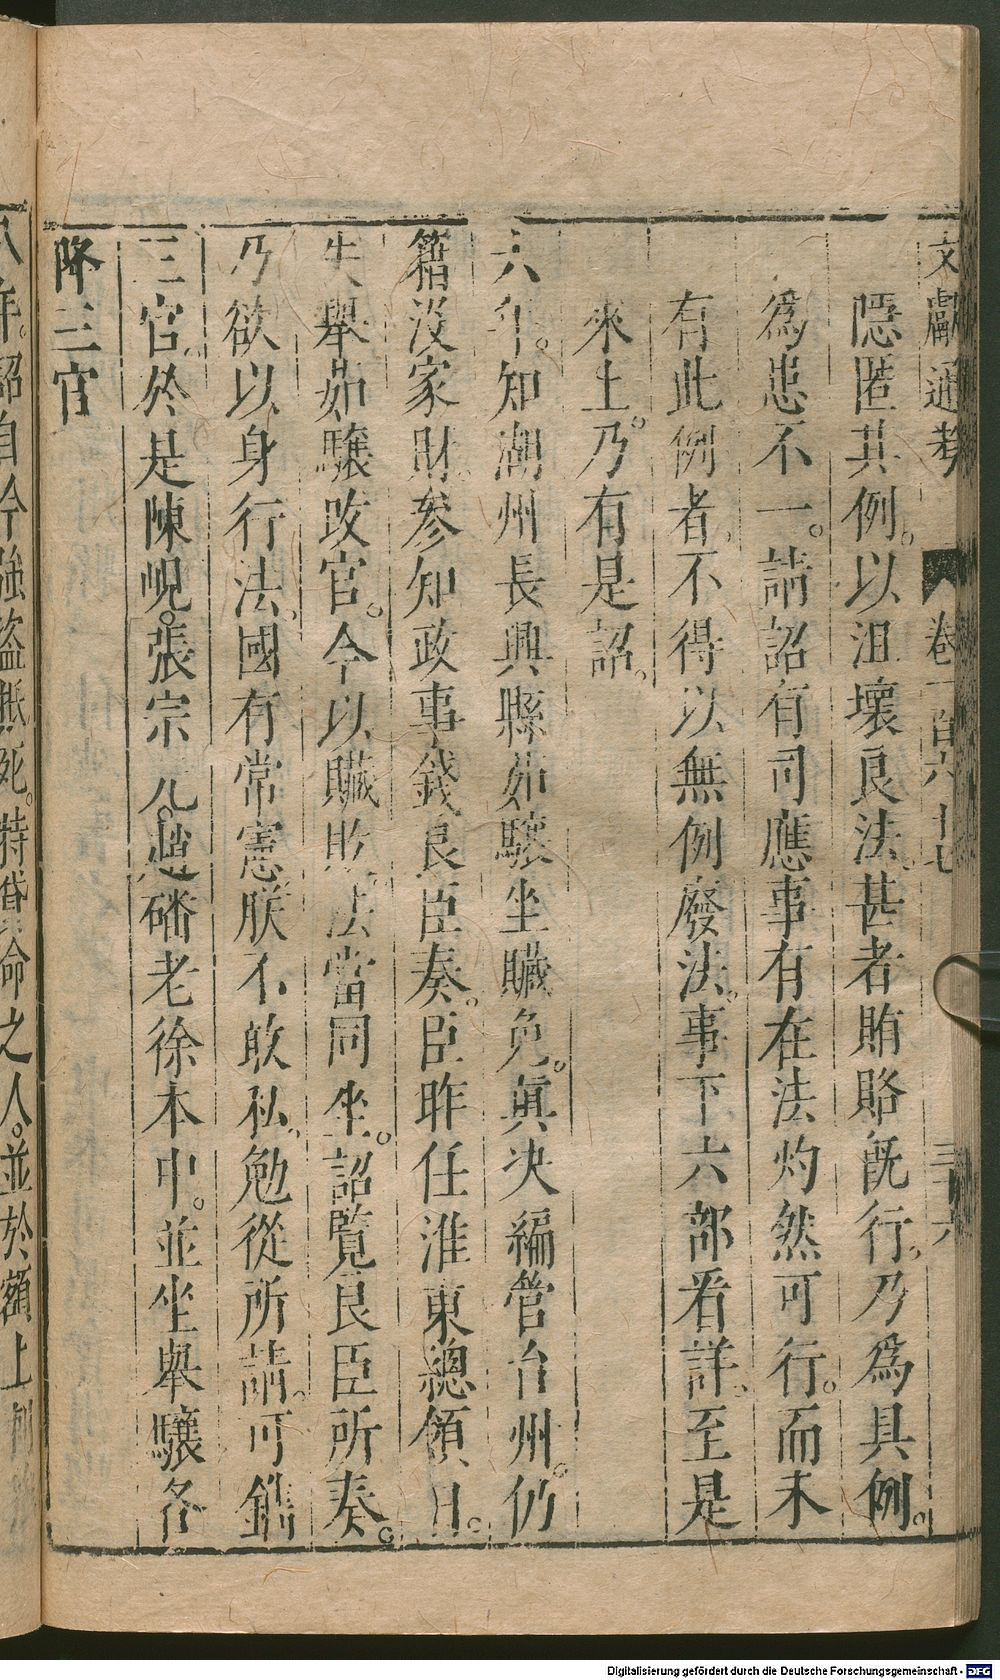 文獻通考 卷一百六十七 三十六
隱匿其例。以沮壞良法。甚者賄賂旣行。乃爲具例。
爲患不一。請詔有司應事有在法灼然可行。而未
有此例者。不得以無例廢法。事下六部看詳。至是
來上。乃有是詔。
六年。知湖州長興縣茹驤坐贓免。眞决編管台州。仍
籍沒家財。參知政事錢良臣奏。臣昨任淮東總領日。
失舉茹驤改官。今以贓敗。法當同坐。詔覽良臣所奏。
乃欲以身行法。國有常憲。朕不敢私。勉從所請。可鐫
三官。於是陳峴。張宗元。趙磻老徐本中。並坐舉驤各
降三官
八年。詔自今強盜抵死。特貸命之人。並於額上刺
Digitalisierung gefördert durch die Deutsche Forschungsgemeinschaft - DFG